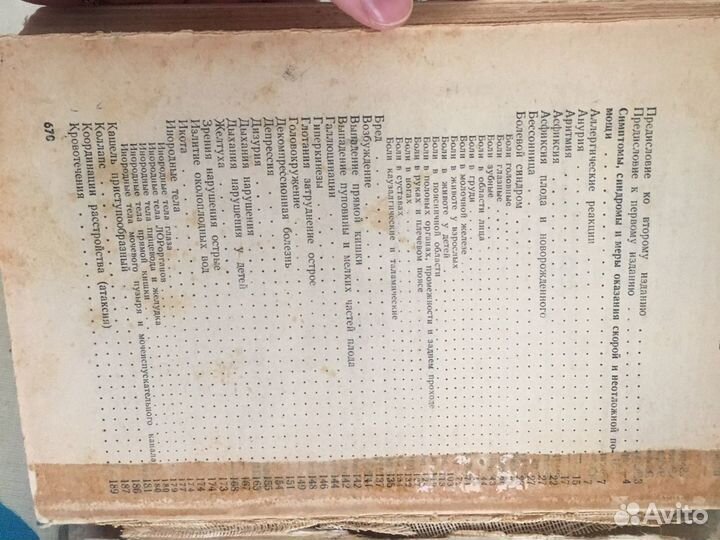 Предисловие ко второму изданию . . . 3
Предисловие к первому изданию . . . 4
Симптомы, синдромы и меры оказания скорой и неотложной по-
мощи . . . 7
Аллергические реакции . . . 7
Анурия . . . 15
Аритмия . . . 17
Асфиксия . . . 22
Асфиксия плода и новорожденного
Бессонница
Болевой синдром
Боли головные
Боли глазные
Боли зубные
Боли в области лица
Боли в груди
Боли в молочной железе
Боли в животе у взрослых
Боли в животе у детей
Боли в поясничной области
Боли в половых органах, промежности и заднем проходе
Боли в руках и плечевом поясе
Боли в ногах
Боли в суставах
Боли каузалгические и таламические
Бред
Возбуждение . . . 141
Выпадение прямой кишки . . . 142
Выпадение пуповины и мелких частей плода . . . 142
Галлюцинации . . . 144
Гиперкинезы . . . 146
Глотания затруднение острое . . . 148
Головокружение . . . 149
Декомпрессионная болезнь . . . 151
Депрессия . . . 154
Дизурия . . . 155
Дыхания нарушения . . . 163
Дыхания нарушения у детей . . . 167
Желтуха . . . 168
Зрения нарушения острые . . . 173
Излитие околоплодных вод . . . 174
Икота . . . 174
Инородные тела . . . 177
Инородные тела глаза . . . 179
Инородные тела ЛОРорганов . . . 180
Инородные тела пищевода и желудка
Инородные тела прямой кишки
Инородные тела мочевого пузыря и мочеиспускательного канала
Кашель приступообразный
Коллапс . . . 186
Координации расстройства (атаксия) . . . 187
Кровотечения . . . 189
670
Avito